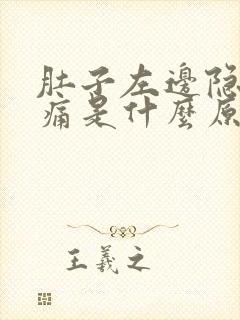 肚子左邊隐
痛是什麼原
王羲之